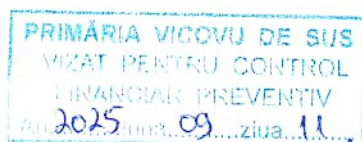 PRIMĂRIA VICOVU DE SUS
VIZAT PENTRU CONTROL
FINANCIAR PREVENTIV
Anul 2025 luna 09 ziua 11